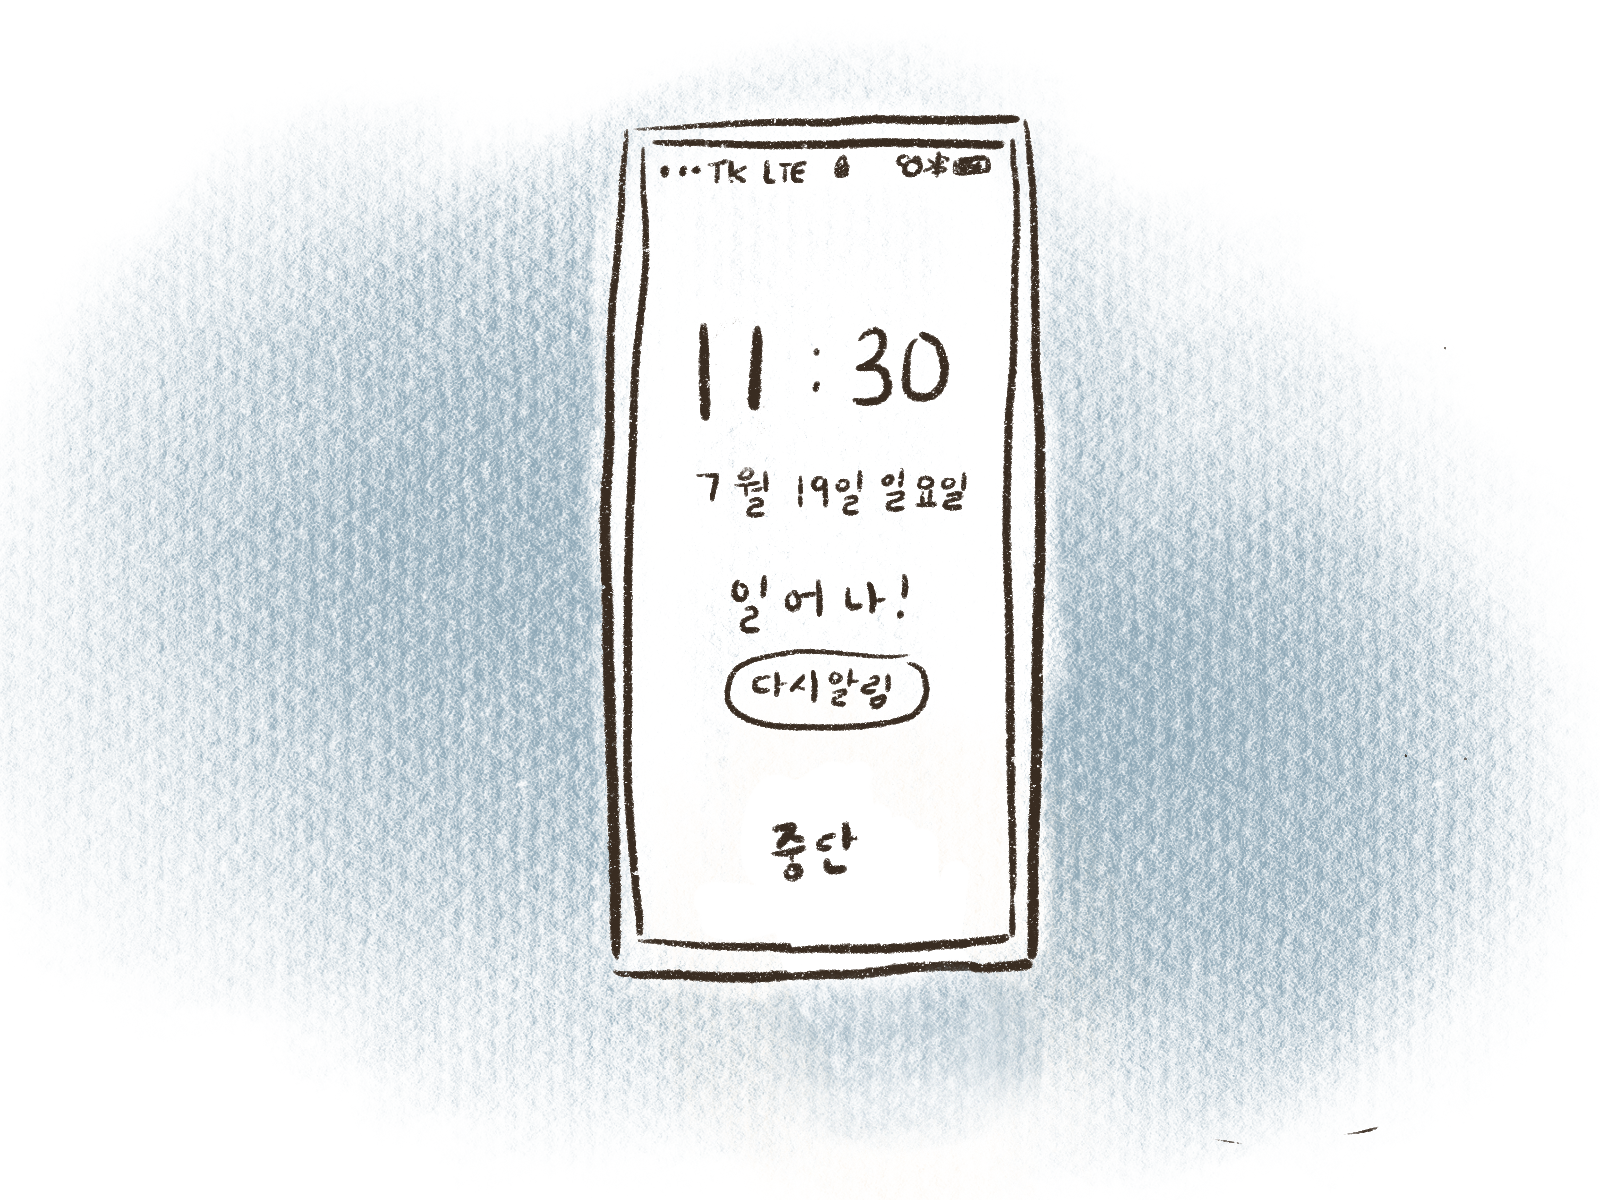 TK LTE
11:30
7월 19일 일요일
일어나!
다시알림
중단